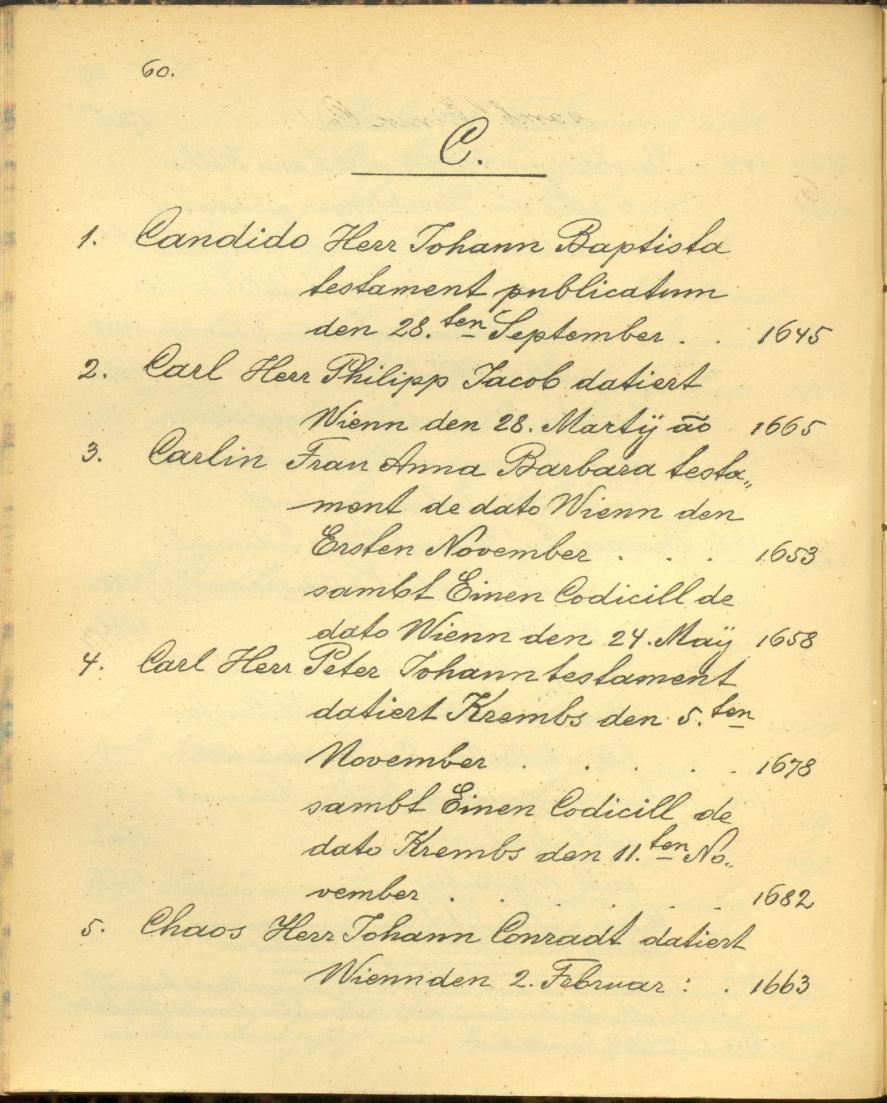 60.
C.
1. Candido Herr Johann Baptista
testament publicatum
den 28.ten September . . 1645
2. Carl Herr Philipp Jacob datiert
Wienn den 28. Martÿ āō 1665
3. Carlin Frau Anna Barbara testa„
ment de dato Wienn den
Ersten November . . . 1653
sambt Einen Codicill de
dato Wienn den 24. Maÿ 1658
4. Carl Herr Peter Johann testament
datiert Krembs den 5.ten
November . . . . . 1678
sambt Einen Codicill de
dato Krembs den 11.ten No„
vember . . . . . . 1682
5. Chaos Herr Johann Conradt datiert
Wienn den 2. Februar : . 1663